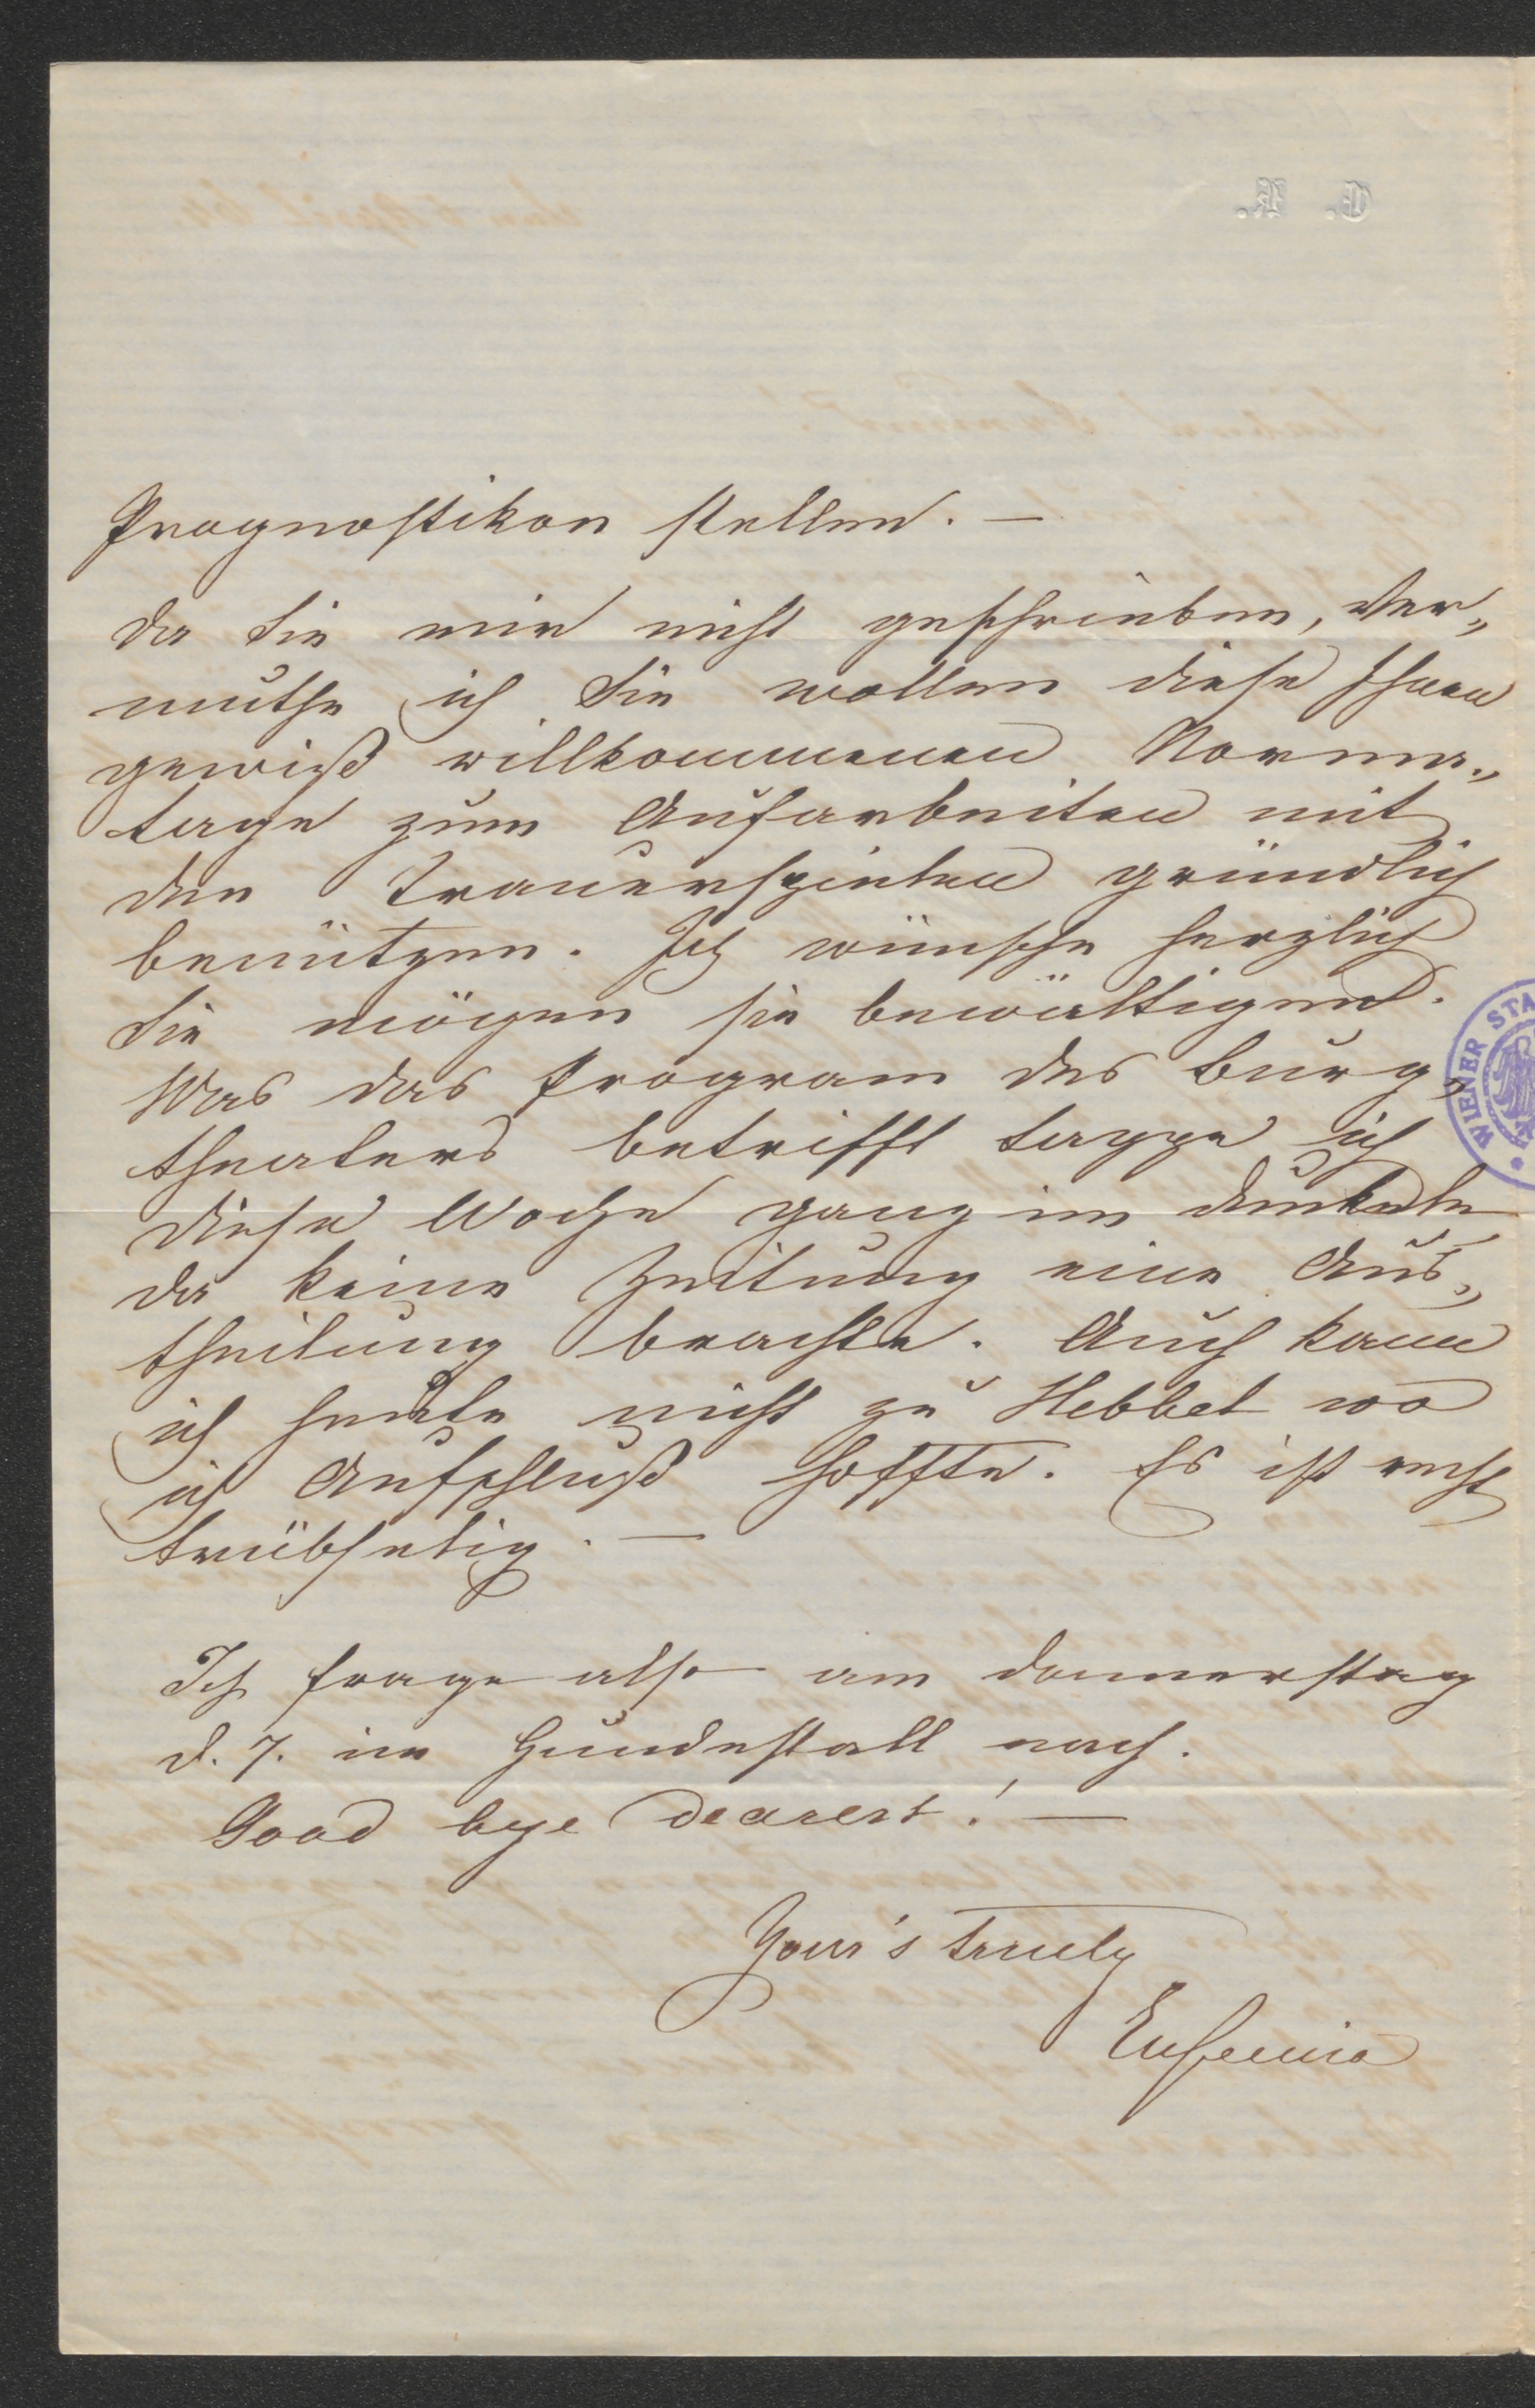 Prognostikon stellen. —
Da Sie mir nicht geschrieben, ver„
muthe ich Sie wollen diese Ihnen
gewiß willkommenen Norma„
tage zum Aufarbeiten mit
den Trauerspielen gründlich
benützen. Ich wünsche herzlich
Sie mögen sie bewältigen.
Was das Program des Burg„
theaters betrifft tappe ich
diese Woche ganz im dunkeln
da keine Zeitung eine Aus„
theilung brachte. Auch kann
ich heute nicht zu Hebbel wo
ich Aufschluß hoffte. Es ist recht
trübselig. —
Ich frage also am Donnerstag
d. 7. im Hundestall nach.
Good bye dearest! —
Your's truely
Eufemia
WIENER STA